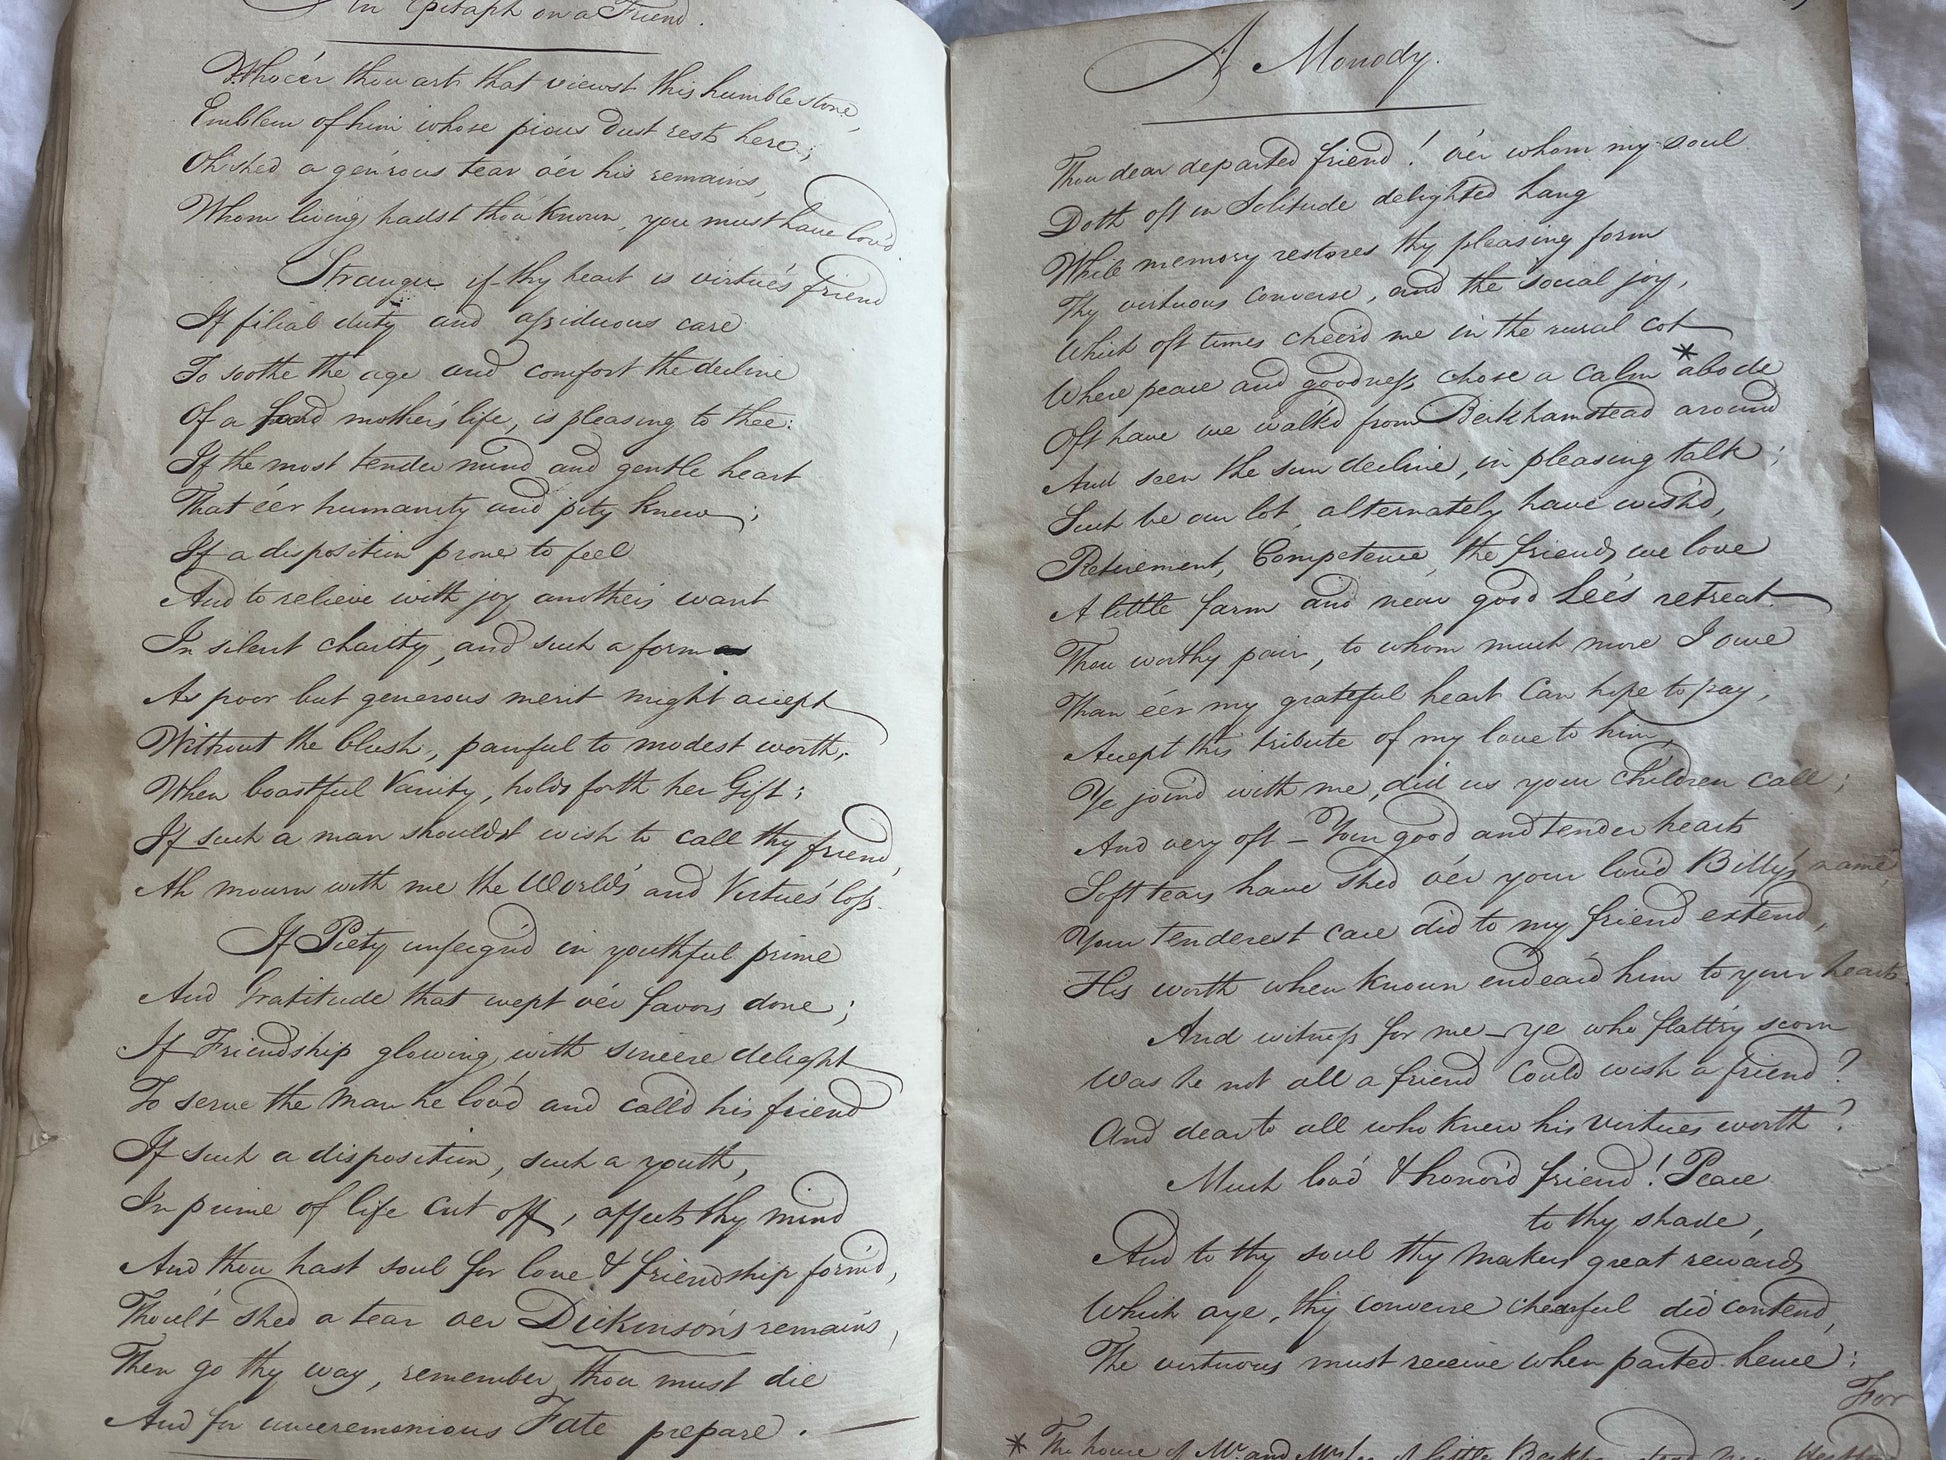 An Epitaph on a Friend.
Whoe'er thou art that viewst this humble stone,
Emblem of him whose pious dust rests here;
Oh shed a gen'rous tear o'er his remains,
Whom living hadst thou known, you must have lov'd
Stranger if thy heart is virtue's friend
If filial duty and assiduous care
To soothe the age and comfort the decline
Of a fond mother's life, is pleasing to thee:
If the most tender mind and gentle heart
That e'er humanity and pity knew;
If a disposition prone to feel
And to relieve with joy another's want
In silent charity, and such a form
As poor but generous merit might accept
Without the blush, painful to modest worth,
When boastful Vanity, holds forth her Gift;
If such a man shouldst wish to call thy friend,
Ah mourn with me the World's and Virtue's loss.
If Piety unfeign'd in youthful prime
And Gratitude that wept o'er favors done;
If Friendship glowing with sincere delight
To serve the Man he lov'd and call'd his friend
If such a disposition, such a youth,
In prime of life cut off, affects thy mind
And thou hast soul for love & friendship form'd,
Thou'lt shed a tear oer Dickinson's remains,
Then go thy way, remember thou must die
And for unceremonious Fate prepare.
A Monody.
Thou dear departed friend! o'er whom my soul
Doth oft in Solitude delighted hang
While memory restores thy pleasing form
Thy virtuous converse, and the social joy,
Which oft times cheer'd me in the rural cot
Where peace and goodness chose a calm *abode
Oft have we walk'd from Berkhamstead around
And seen the sun decline, in pleasing talk;
Such be our lot, alternately have wish'd,
Retirement, Competence, the friends we love
A little farm and near good Lee's retreat.
Thou worthy pair, to whom much more I owe
Than e'er my grateful heart can hope to pay,
Accept this tribute of my love to him,
Ye join'd with me, did us your children call;
And very oft – Your good and tender hearts
Soft tears have shed o'er your lov'd Billy's name,
Your tenderest care did to my friend extend,
His worth when known endear'd him to your hearts.
And witness for me – ye who flatt'ry scorn
Was he not all a friend could wish a friend?
And dear to all who knew his virtues worth?
Much lov'd & honor'd friend! Peace
to thy shade,
And to thy soul thy Makers great reward,
Which aye, thy converse chearful did contend,
The virtuous must receive when parted hence;
For
* The house of Mr. and Mrs Lee of little Berkhamstead near Hertford